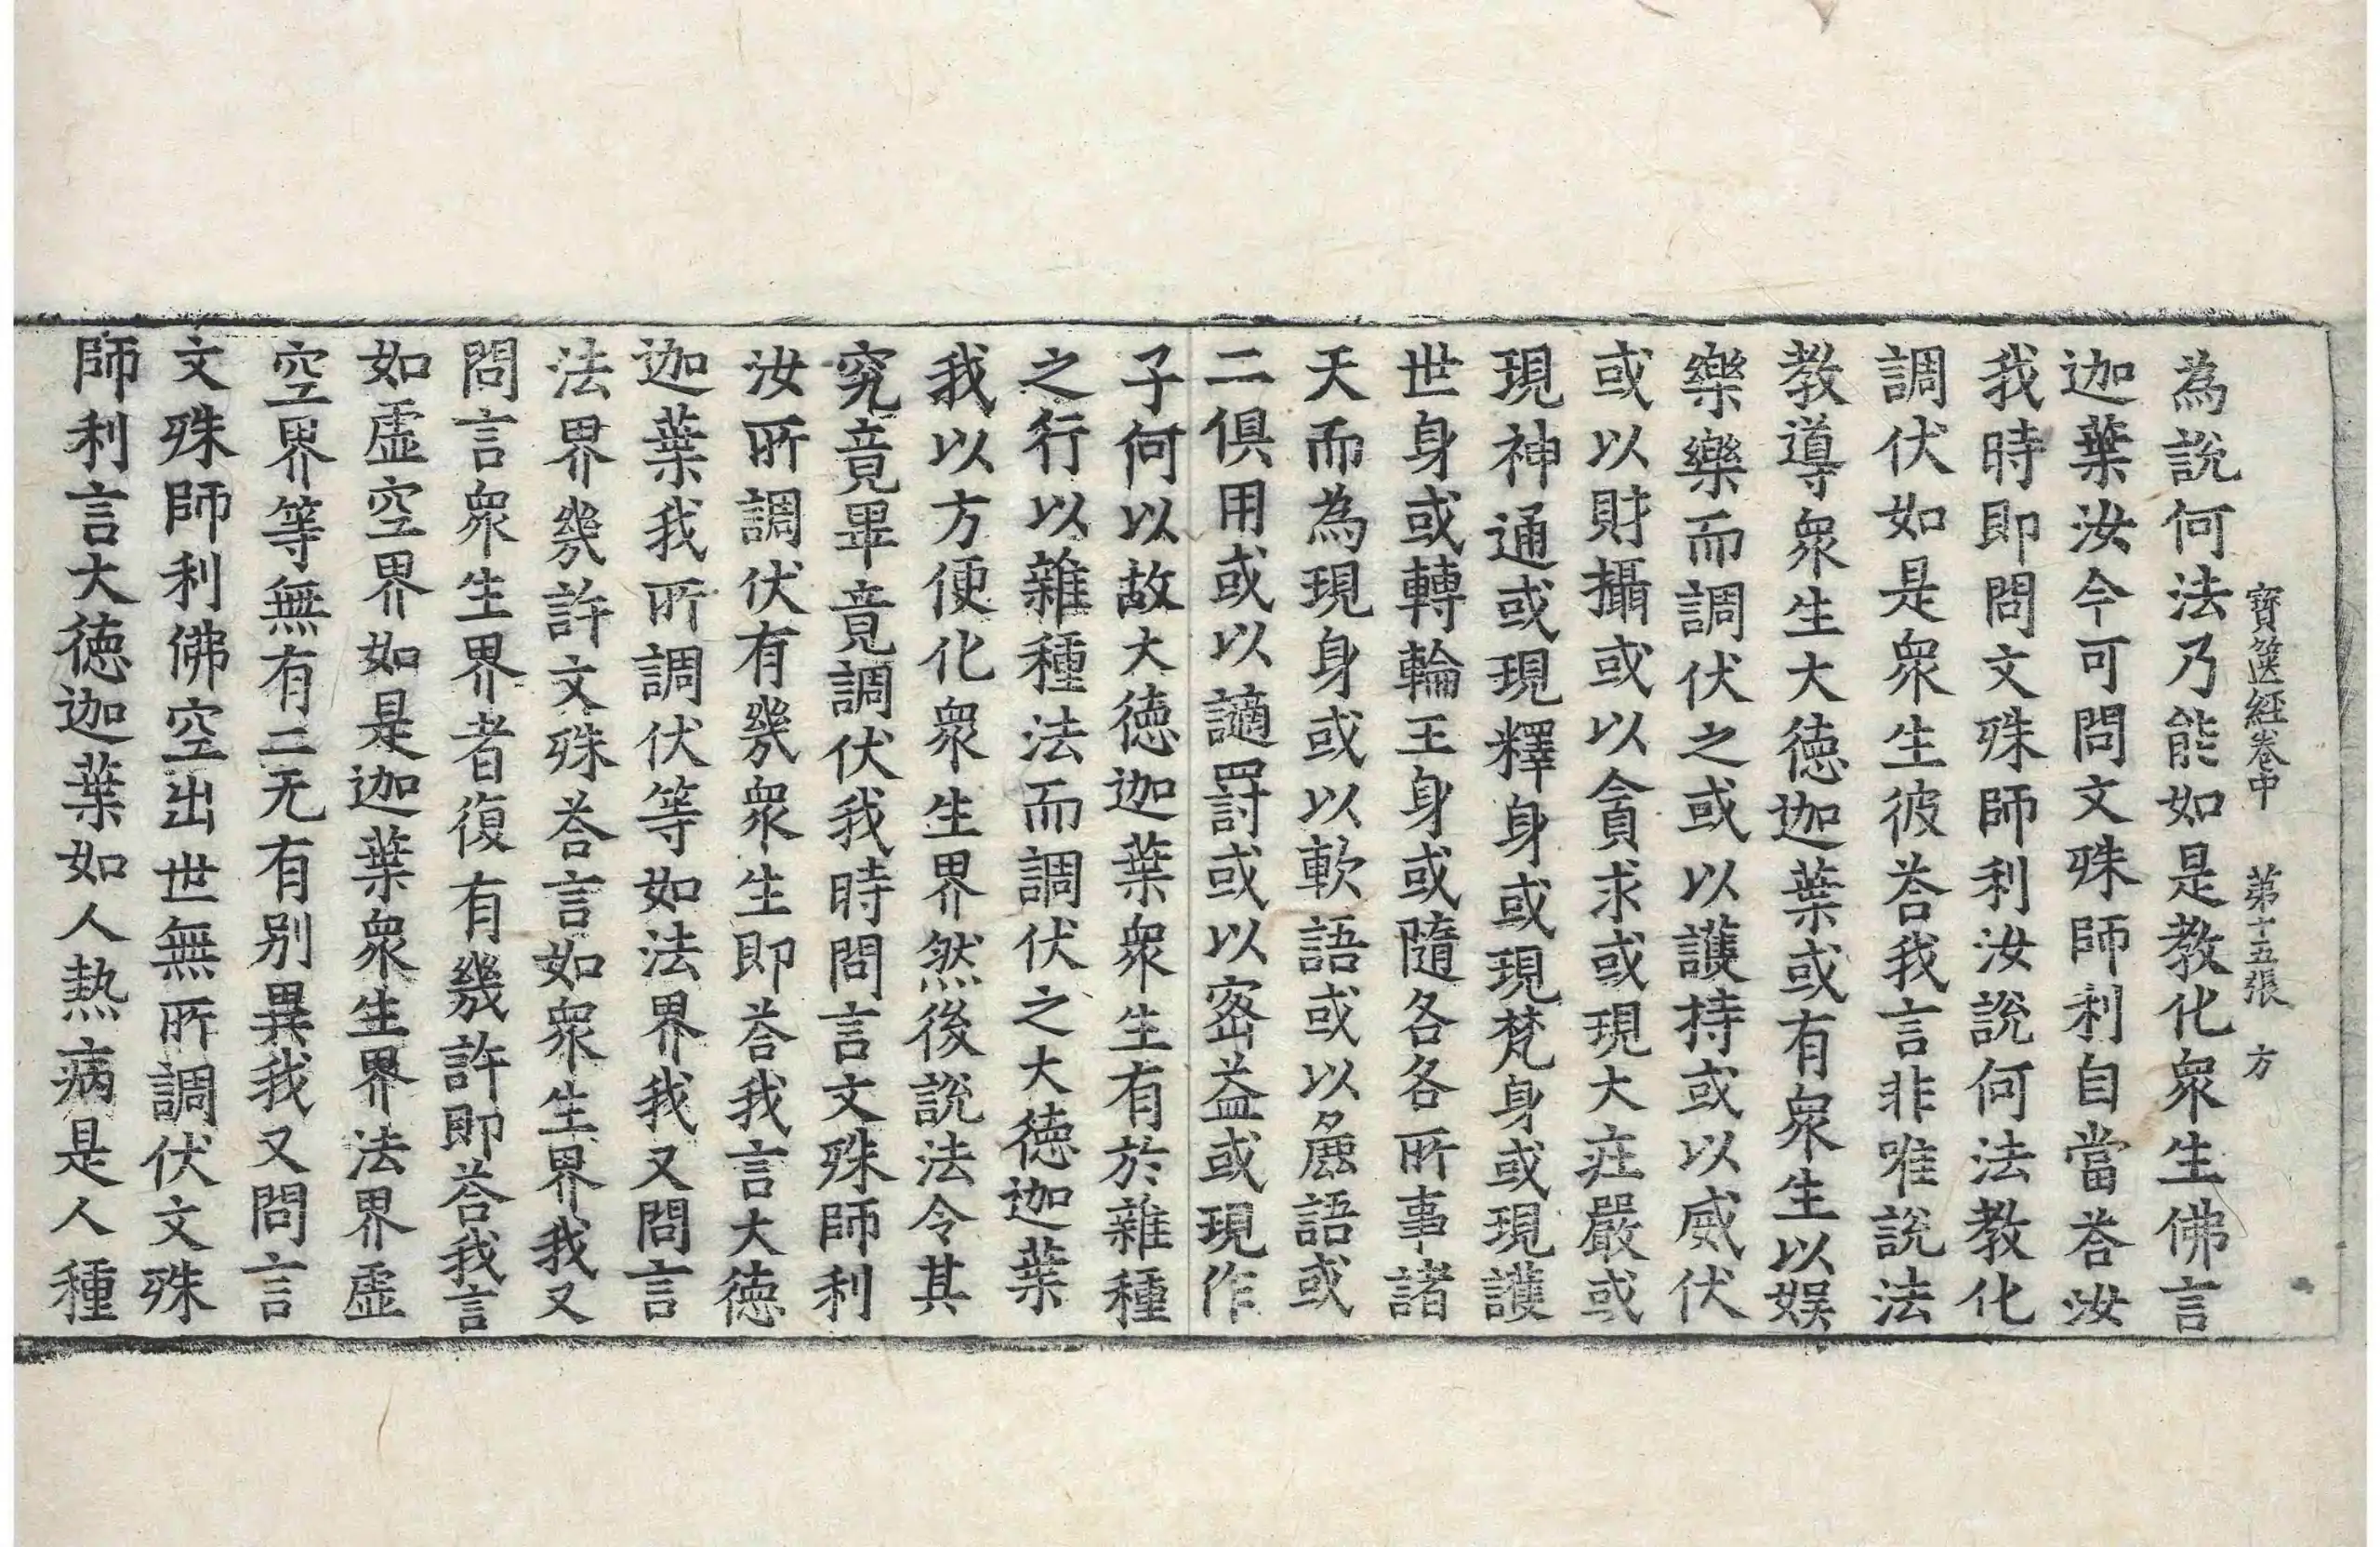 寶篋経卷中 第十五張 方
為說何法乃能如是教化衆生佛言
迦葉汝今可問文殊師利自當荅汝
我時即問文殊師利汝說何法教化
調伏如是衆生彼荅我言非唯說法
教導衆生大德迦葉或有衆生以娱
樂樂而調伏之或以護持或以威伏
或以財攝或以貪求或現大庄嚴或
現神通或現釋身或現梵身或現護
世身或轉輪王身或隨各各所事諸
天而為現身或以軟語或以麁語或
二俱用或以讁罸或以宻益或現作
子何以故大德迦葉衆生有於雜種
之行以雜種法而調伏之大德迦葉
我以方便化衆生界然後說法令其
究竟畢竟調伏我時問言文殊師利
汝所調伏有幾衆生即荅我言大德
迦葉我所調伏等如法界我又問言
法界幾許文殊荅言如衆生界我又
問言衆生界者復有幾許即荅我言
如虛空界如是迦葉衆生界法界虛
空界等無有二无有别異我又問言
文殊師利佛空出世無所調伏文殊
師利言大德迦葉如人热病是人種